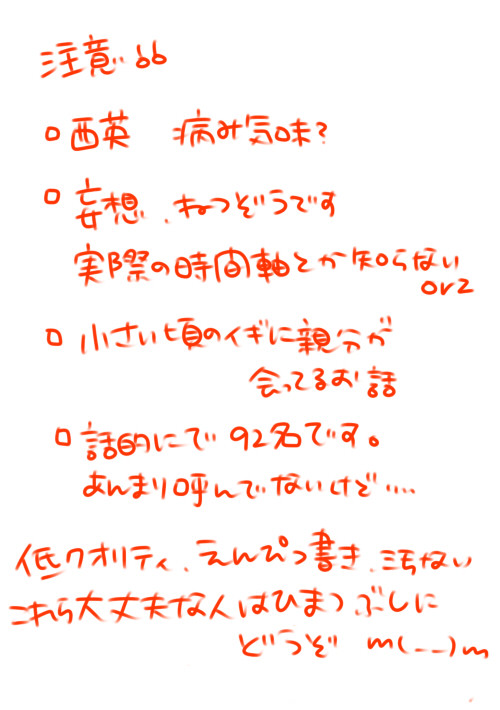 注意；；
□ 西英　病み気味？
□ 妄想、ねつぞうです
実際の時間軸とか知らない
orz
□ 小さい頃のイギに親分が
会ってるお話
□ 話的にで92名です。
あんまり呼んでないけど‥‥
低クオリティ、えんぴつ書き、汚い
これら大丈夫な人はひまつぶしに
どうぞ m(_ _)m